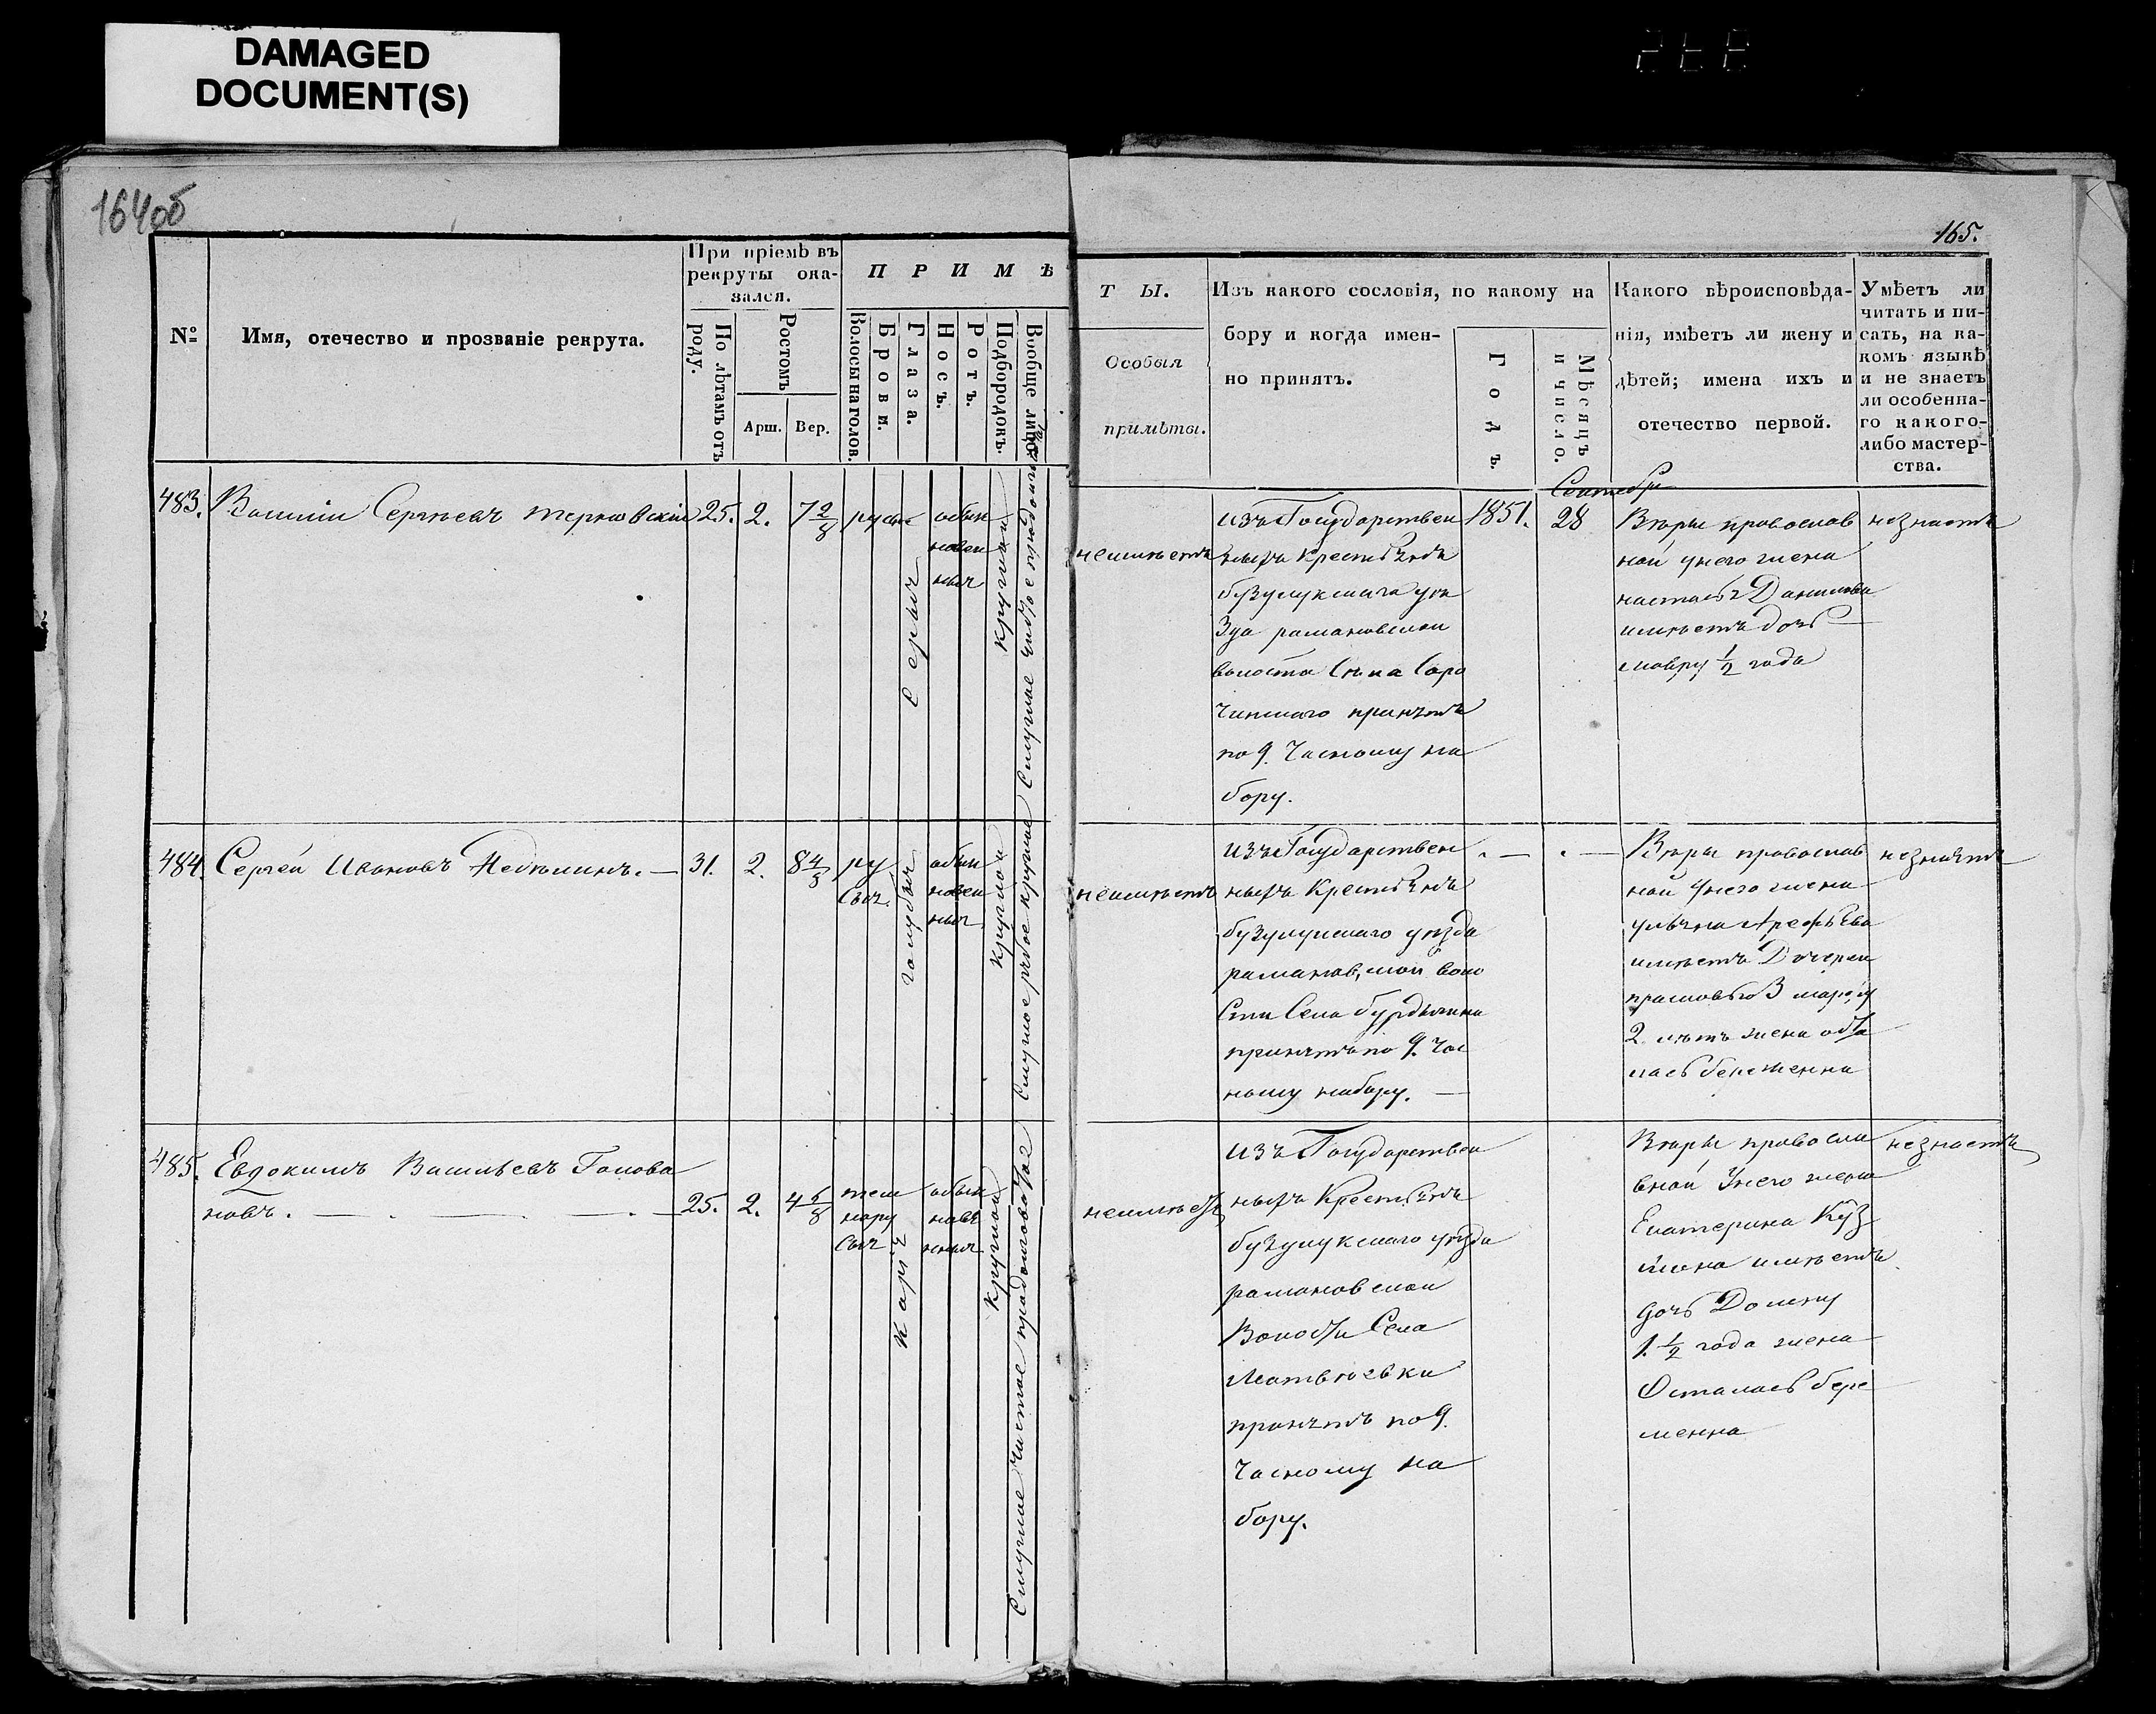 DAMAGED
DOCUMENT(S)
164об
165.
№
Имя, отечество и прозваніе рекрута.
При пріемѣ въ
рекруты ока-
зался.
По лѣтамъ отъ
роду.
Ростомъ
Арш.
Вер.
П Р И М Ѣ
Волосы на голов.
Брови.
Глаза.
Носъ.
Ротъ.
Подбородокъ.
Вообще лицо.
Т Ы.
Особыя
примѣты.
Изъ какого сословія, по какому на
бору и когда имен-
но принятъ.
Годъ.
Мѣсяцъ
и число.
Какого вѣроисповѣда-
нія, имѣетъ ли жену и
дѣтей; имена ихъ и
отечество первой.
Умѣетъ ли
читать и пи-
сать, на ка-
комъ языкѣ
и не знаетъ
ли особенна-
го какого-
либо мастер-
ства.
483.
Василіи Сергѣевъ
25.
2.
7 2/8
русы
серыя
обын
новен
ныя
круглой
Смуглое
неимѣетъ
изъ Государствен
ныхъ Крестьянъ
бузулукскага уѣ
зда рамановской
волости Села Соро
чинскаго принятъ
по 9. Часному на
бору.
1851.
Сентебря
28
Вѣры православ
ной унего жена
настасья Данилова
имѣетъ дочь
мавру 1/2 года
незнаетъ
484.
Сергей Ивановъ Недюлинъ. —
31.
2.
8 4/8
ру
сыя.
голубыя
обын
новен
ныя
круглой
Смуглое рябое круглое
неимѣетъ
изъ Государствен
ныхъ Крестьянъ
бузулукскаго уѣзда
рамановской воло
сти Села бурдыгина
принятъ по 9. Час
ному набору. —
. —
. —
Вѣры православ
ной унего жена
ульяна Арефьева
имѣетъ Дочерей
прасковью 3 марфу
2. лѣтъ жена оста
лась беременна
незнаетъ
485.
Евдокимъ Васильевъ Голова
новъ.
25.
2.
4 6/8
тем
нору
сыя
Каріе
обын
новѣ
нныя
круглой
Смуглое чистое продолговатое
неимѣетъ
изъ Государствен
ныхъ Крестьянъ
бузулукскаго уѣзда
рамановской
Волости Села
Матвѣевки
принятъ по 9.
Часному на
бору.
Вѣры правосла
вной Унего жена
Екатерина Куз
мина имѣетъ
дочь Домну
1. 1/2 года жена
Осталась бере
менна
незнаетъ